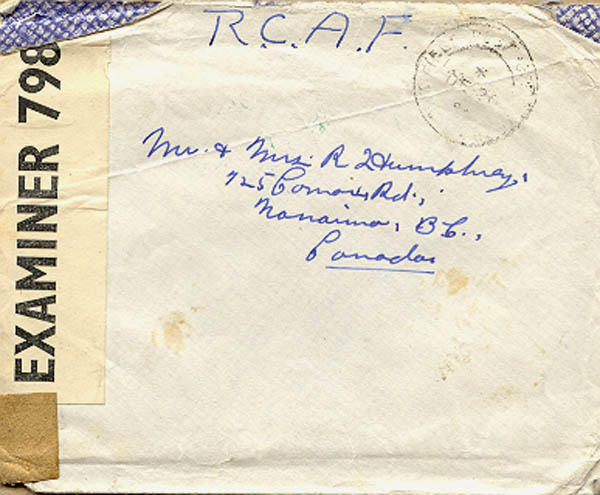 R.C.A.F.
EXAMINER 798
Mr. & Mrs. R Humphreys,
725 Comox Rd.,
Nanaimo, B.C.,
Canada